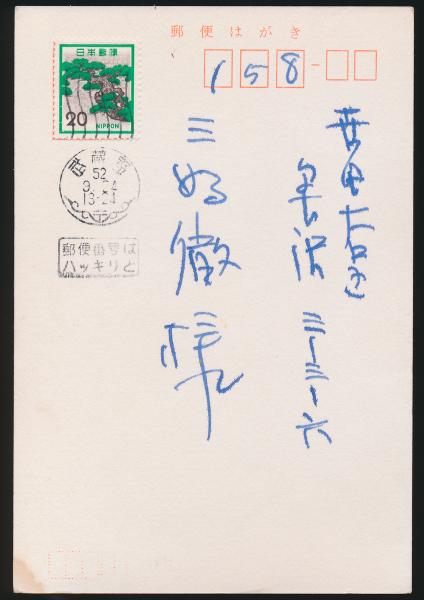 郵便はがき
158
日本郵便
20
NIPPON
武蔵野
52
9.24
18-24
郵便番号は
ハッキリと
世田谷区
奥沢 三ー三ー六
三好徹
様